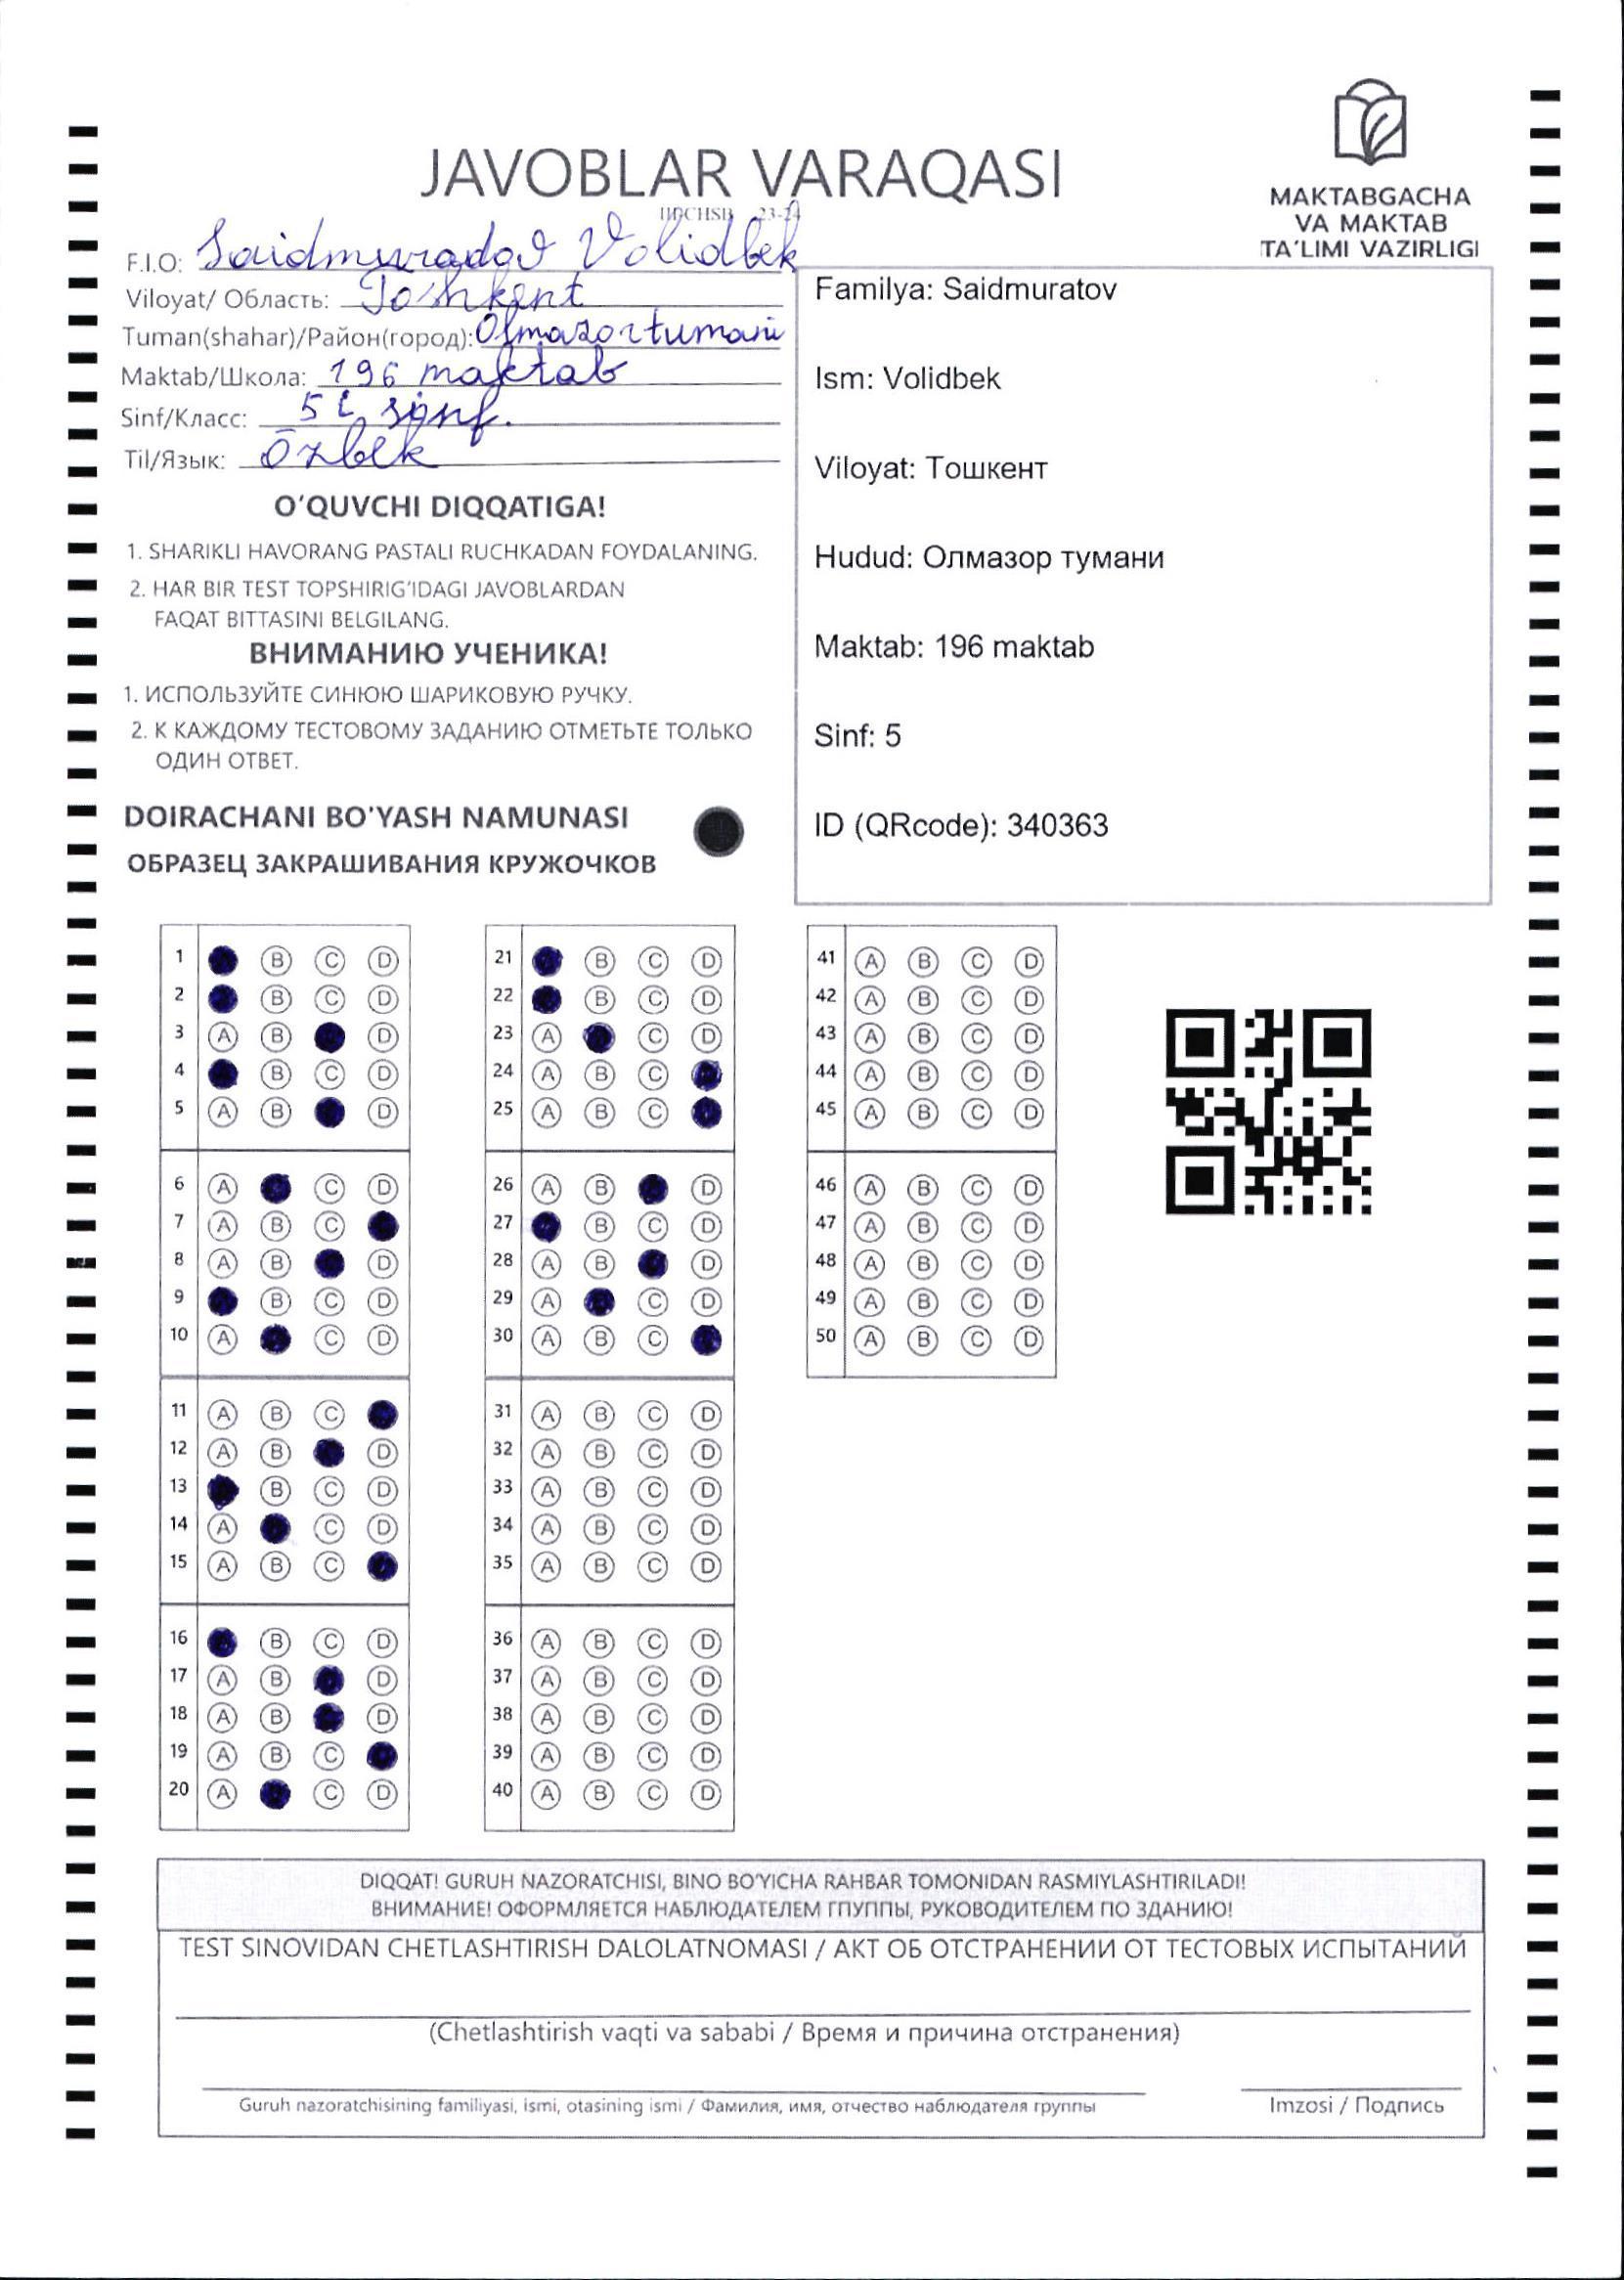 JAVOBLAR VARAQASI
23-24
MAKTABGACHA
VA MAKTAB
TA'LIMI VAZIRLIGI
F.I.O: Saidmuradov Volidbek
Viloyat/ Область: Toshkent
Tuman(shahar)/Район(город): Olmazor tumani
Maktab/Школа: 196 maktab
Sinf/Класс: 5 sinf.
Til/Язык: Ozbek
Familya: Saidmuratov
Ism: Volidbek
Viloyat: Тошкент
Hudud: Олмазор тумани
Maktab: 196 maktab
Sinf: 5
ID (QRcode): 340363
O'QUVCHI DIQQATIGA!
1. SHARIKLI HAVORANG PASTALI RUCHKADAN FOYDALANING.
2. HAR BIR TEST TOPSHIRIG'IDAGI JAVOBLARDAN
FAQAT BITTASINI BELGILANG.
ВНИМАНИЮ УЧЕНИКА!
1. ИСПОЛЬЗУЙТЕ СИНЮЮ ШАРИКОВУЮ РУЧКУ.
2. К КАЖДОМУ ТЕСТОВОМУ ЗАДАНИЮ ОТМЕТЬТЕ ТОЛЬКО
ОДИН ОТВЕТ.
DOIRACHANI BO'YASH NAMUNASI
ОБРАЗЕЦ ЗАКРАШИВАНИЯ КРУЖОЧКОВ
1 B C D
2 B C D
3 A B D
4 B C D
5 A B D
6 A C D
7 A B C
8 A B D
9 B C D
10 A C D
11 A B C
12 A B D
13 B C D
14 A C D
15 A B C
16 B C D
17 A B D
18 A B D
19 A B C
20 A C D
21 B C D
22 B C D
23 A C D
24 A B C
25 A B C
26 A B D
27 B C D
28 A B D
29 A C D
30 A B C
31 A B C D
32 A B C D
33 A B C D
34 A B C D
35 A B C D
36 A B C D
37 A B C D
38 A B C D
39 A B C D
40 A B C D
41 A B C D
42 A B C D
43 A B C D
44 A B C D
45 A B C D
46 A B C D
47 A B C D
48 A B C D
49 A B C D
50 A B C D
DIQQAT! GURUH NAZORATCHISI, BINO BO'YICHA RAHBAR TOMONIDAN RASMIYLASHTIRILADI!
ВНИМАНИЕ! ОФОРМЛЯЕТСЯ НАБЛЮДАТЕЛЕМ ГПУППЫ, РУКОВОДИТЕЛЕМ ПО ЗДАНИЮ!
TEST SINOVIDAN CHETLASHTIRISH DALOLATNOMASI / АКТ ОБ ОТСТРАНЕНИИ ОТ ТЕСТОВЫХ ИСПЫТАНИЙ
(Chetlashtirish vaqti va sababi / Время и причина отстранения)
Guruh nazoratchisining familiyasi, ismi, otasining ismi / Фамилия, имя, отчество наблюдателя группы
Imzosi / Подпись